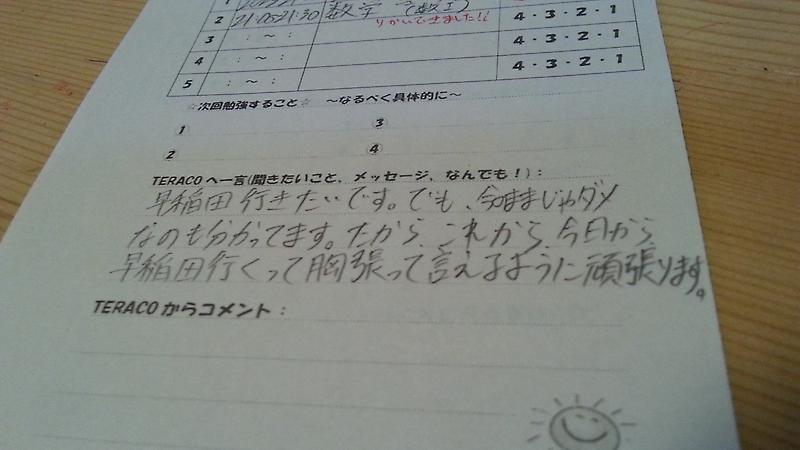 1
2 21:05~21:30 数学 (数I) 4・3・2・1
りかいできました!!
3 : ~ : 4・3・2・1
4 : ~ : 4・3・2・1
5 : ~ : 4・3・2・1
☆次回勉強すること☆ ~なるべく具体的に~
1 3
2 4
TERACOへ一言(聞きたいこと、メッセージ、なんでも!):
早稲田行きたいです。でも、今のままじゃダメ
なのも分かってます。だから、これから、今日から、
早稲田行くって胸張って言えるように頑張ります。
TERACOからコメント: